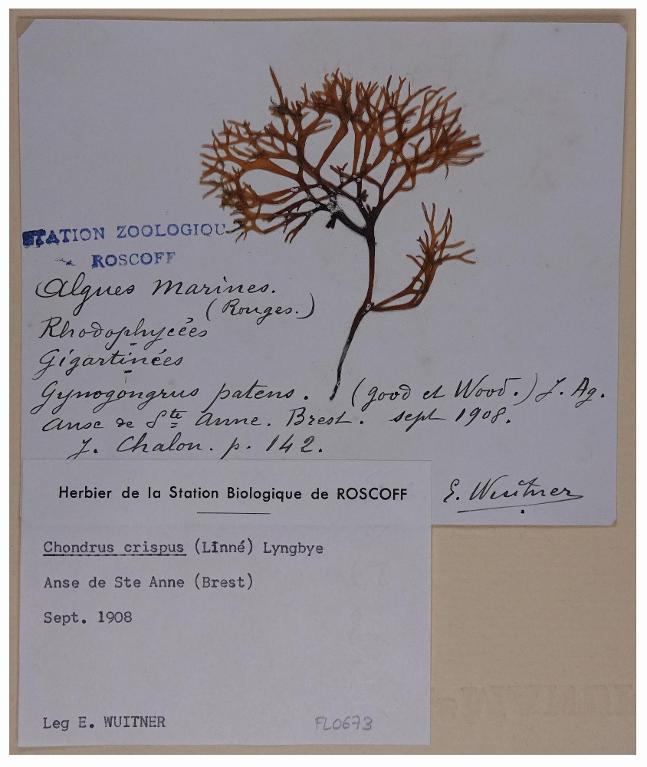 STATION ZOOLOGIQU
ROSCOFF
Algues marines.
(Rouges.)
Rhodophycées
Gigartinées
Gynogongrus patens. (good et Wood.) J. Ag.
anse de Ste Anne. Brest. sept 1908.
J. Chalon. p. 142.
E. Wuitner
Herbier de la Station Biologique de ROSCOFF
Chondrus crispus (LInné) Lyngbye
Anse de Ste Anne (Brest)
Sept. 1908
Leg E. WUITNER
FL0673